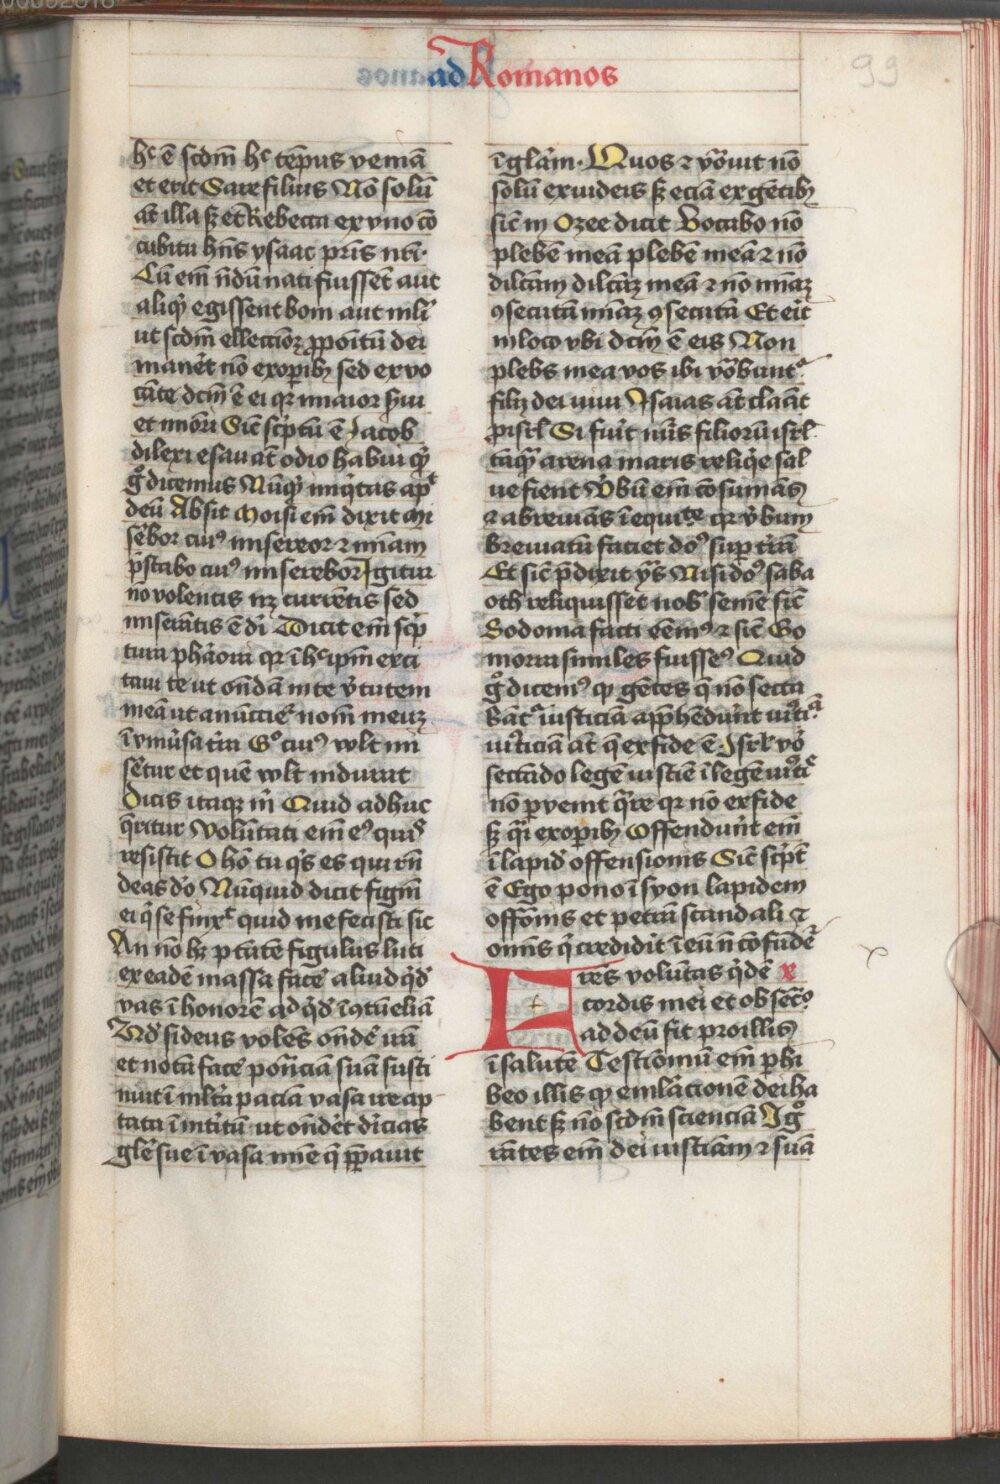 ad Romanos
99
hᶜ ē scdm̄ hᶜ tēpus veniā
et erit Sare filius Nō solū
at̄ illa sꝫ et Rebecca ex vno cō
cubitu hn̄s ysaac pr̄is nr̄i·
Cū em̄ nōdū nati fuissēt aut
aliqͥd egissent boni aut mali
ut scdm̄ ellectionꝫ ꝓpoitū dei
manēt nō ex oꝑibꝫ sed ex vo
cāte dcm̄ ē ei qꝛ maior ẜuiet
et minori Sic̄ sc̄ptū ē Jacob
dilexi esau at̄ odio habui qͥd
gͦ dicemus Nūqͥd iniqͥtas apᵗ
deū Absit Moisi em̄ dixit mi
sēbor cuiꝰ misereor ⁊ mīam
p̄stabo cuiꝰ miserebor Igitur
no volentis nꝫ currētis sed
miserātis ē di Dicit em̄ sc̄p
tura pharaoni qꝛ ī hᶜ ip̄m exci
taui te ut ondā in te v̄tutem
meā ut anūccieᵗ nom̄ meuꝫ
ī vniūsa tr̄a Gͦ cuiꝰ vult mi
sētur et quē vult indurat
Dicis itaqꝫ m̄ Quid adhuc
q̄ritur Voluntati em̄ eꝰ quis
resistit O hō tu qͥs es qui rn̄
deas dō Nūnquid dicit figm̄
ei q̄ se finxᵗ quid me fecisti sic
An nō hꝫ ptātē figulus luti
ex eadē massa facē aliud qͥdē
vas ī honorē aͦd qͥdē ī ɔtūeliā
Qd̄ si deus volēs ondē irā
et notā facē ponciā suā susti
nuit ī mlta paciā vasa ire ap
tata ī int̄itū ut ondēt dīcias
glē sue ī vasa mīe q̄ p̄ꝑauit
ī gl̄am· Quos ⁊ vōuit nō
solū ex iudeis sꝫ eciā ex gētibꝫ
sic̄ in Ozee dicit Vocabo nō
plebē meā plebē meā ⁊ nō
dilcām dilcāꝫ meā ⁊ nō mīaꝫ
ɔsecutā mīaꝫ ɔsecutā Et eīt
in loco vbi dcm̄ ē eis Non
plebs mea vos ibi vōbuntᵘʳ
filij dei viui Isaias at̄ clamat
ꝑ isrl̄ Si fuīt nūs filiorū isrl̄
tāqͣꝫ arena maris reliqͥe sal
ue fient V̄bū em̄ cōsumās
⁊ abreuiās ī equite qꝛ v̄bum
breuiatū faciet doꝰ suꝑ tr̄ā
Et sic̄ p̄dixit ys Nisi doꝰ saba
oth reliquisset nob̄ semē sic̄
Sodoma facti eēmꝰ ⁊ sic̄ Go
morra similes fuisseꝰ Quid
gͦ dicemꝰ qꝫ gētes q̄ nō secta
bātᵘʳ iusticiā app̄hēdunt iusticiā
iusticiā at̄ q̄ ex fide ē Isrl̄ vō
sectādo legē iusticie ī legē iusticie
nō ꝑvenit qͣre qꝛ nō ex fide
sꝫ qͣsi ex oꝑibꝫ Offendunt em̄
ī lapidē offensionis Sic̄ sc̄pt
ē Ego pono ī syon lapidem
offōnis et petrā scandali ⁊
omīs q̄ crediderit ī eū nō cōfundēᵗ
Fres voluntas qͥdē x
cordis mei et obsecͦ
ad deū fit pro illis
ī salutē Testionīū em̄ ꝑhi
beo illis qꝫ emulacionē dei ha
bent sꝫ nō scdm̄ scienciā Igͦ
rātes em̄ dei iusticiam ⁊ suā